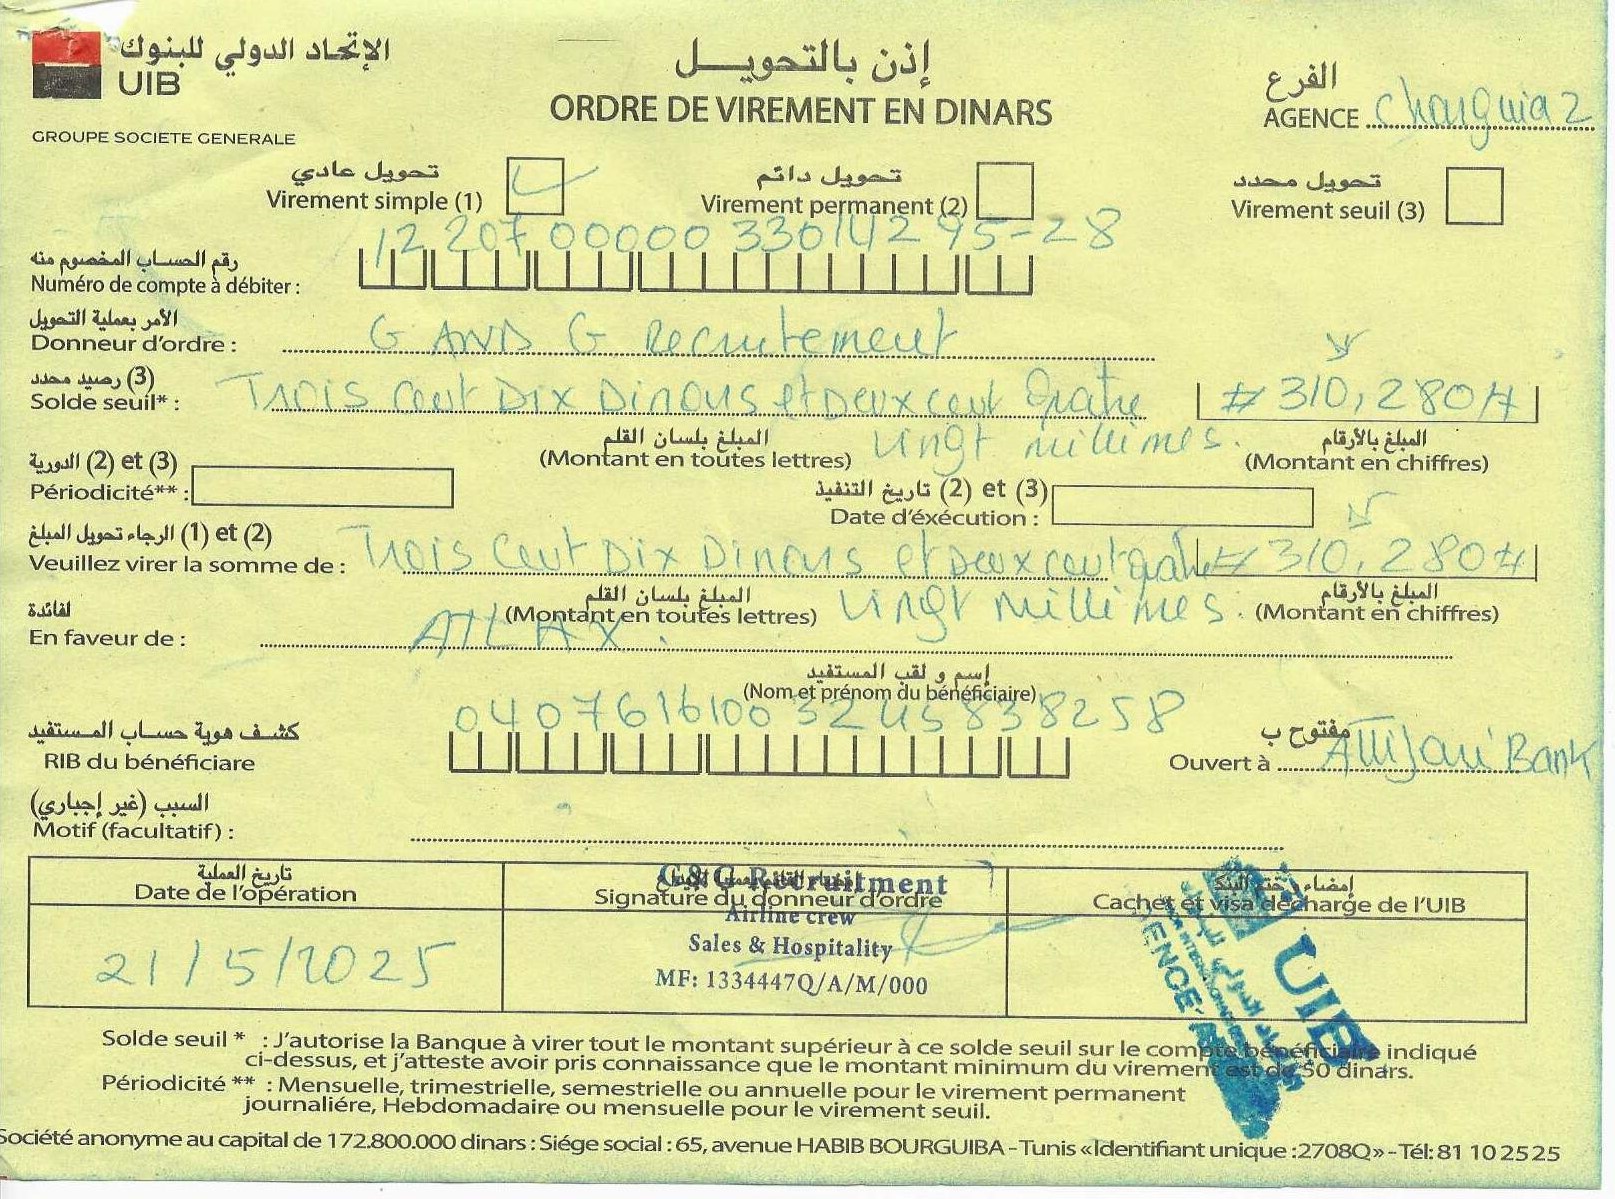 الإتحاد الدولي للبنوك
UIB
GROUPE SOCIETE GENERALE
إذن بالتحويل
ORDRE DE VIREMENT EN DINARS
الفرع
AGENCE Charguia 2
تحويل عادي
Virement simple (1)
تحويل دائم
Virement permanent (2)
تحويل محدد
Virement seuil (3)
12 207 00000 33014295-28
رقم الحساب المخصوم منه
Numéro de compte à débiter :
الأمر بعملية التحويل
Donneur d'ordre : G AND G Recrutement
(3) رصيد محدد
Solde seuil* : Trois cent Dix Dinars et Deux cent Quatre # 310,280 #
vingt millimes.
المبلغ بلسان القلم
(Montant en toutes lettres)
المبلغ بالأرقام
(Montant en chiffres)
الدورية (2) et (3)
Périodicité** :
تاريخ التنفيذ (2) et (3)
Date d'éxécution :
الرجاء تحويل المبلغ (1) et (2)
Veuillez virer la somme de : Trois Cent Dix Dinars et Deux cent quatre # 310,280 #
vingt millimes.
المبلغ بلسان القلم
(Montant en toutes lettres)
المبلغ بالأرقام
(Montant en chiffres)
لفائدة
En faveur de :
إسم و لقب المستفيد
(Nom et prénom du bénéficiaire)
كشف هوية حساب المستفيد
RIB du bénéficiare
مفتوح ب
Ouvert à Attijari Bank
السبب (غير إجباري)
Motif (facultatif) :
تاريخ العملية
Date de l'opération
Signature du donneur d'ordre
إمضاء و ختم البنك
Cachet et visa décharge de l'UIB
21/5/2025
G&G Recruitment
Airline crew
Sales & Hospitality
MF: 1334447Q/A/M/000
UIB
AGENCE
Solde seuil * : J'autorise la Banque à virer tout le montant supérieur à ce solde seuil sur le compte bénéficiaire indiqué
ci-dessus, et j'atteste avoir pris connaissance que le montant minimum du virement est de 50 dinars.
Périodicité ** : Mensuelle, trimestrielle, semestrielle ou annuelle pour le virement permanent
journaliére, Hebdomadaire ou mensuelle pour le virement seuil.
Société anonyme au capital de 172.800.000 dinars : Siége social : 65, avenue HABIB BOURGUIBA - Tunis «Identifiant unique :2708Q» - Tél: 81 10 25 25